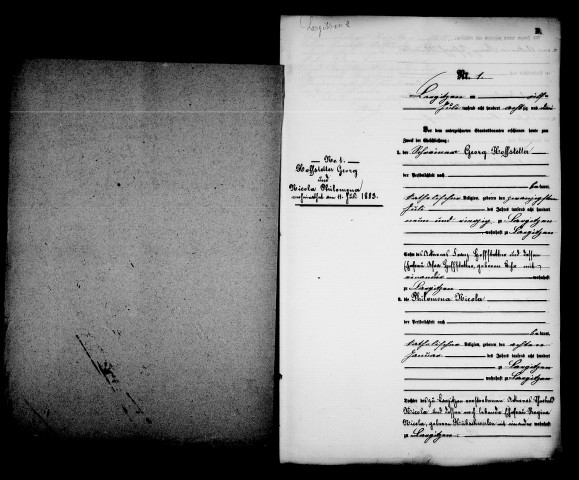 Largitzen
B.
No. 1.
Hoffstetter Georg
und
Nicola Philomena
verheirathet am 11. Juli 1883.
Nr. 1.
Largitzen am elften
Juli tausend acht hundert achtzig und drei
Vor dem unterzeichneten Standesbeamten erschienen heute zum
Zweck der Eheschließung:
1. der Schreiner Georg Hoffstetter
der Persönlichkeit nach
bekannt,
katholischer Religion, geboren den zwanzigsten
Juli des Jahres tausend acht hundert
neun und vierzig zu Largitzen
wohnhaft zu Largitzen
Sohn des Ackerers Hoffstetter und dessen
Ehefrau Hoffstetter, geborenen mit
einander wohnhaft
zu Largitzen
2. die Philomena Nicola
der Persönlichkeit nach
bekannt,
katholischer Religion, geboren den achten
Januar des Jahres tausend acht hundert
zu Largitzen
wohnhaft zu Largitzen
Tochter des zu Largitzen verstorbenen Ackerers
Nicola und dessen noch lebende Ehefrau Regina
Nicola, geborenen wohnhaft
zu Largitzen